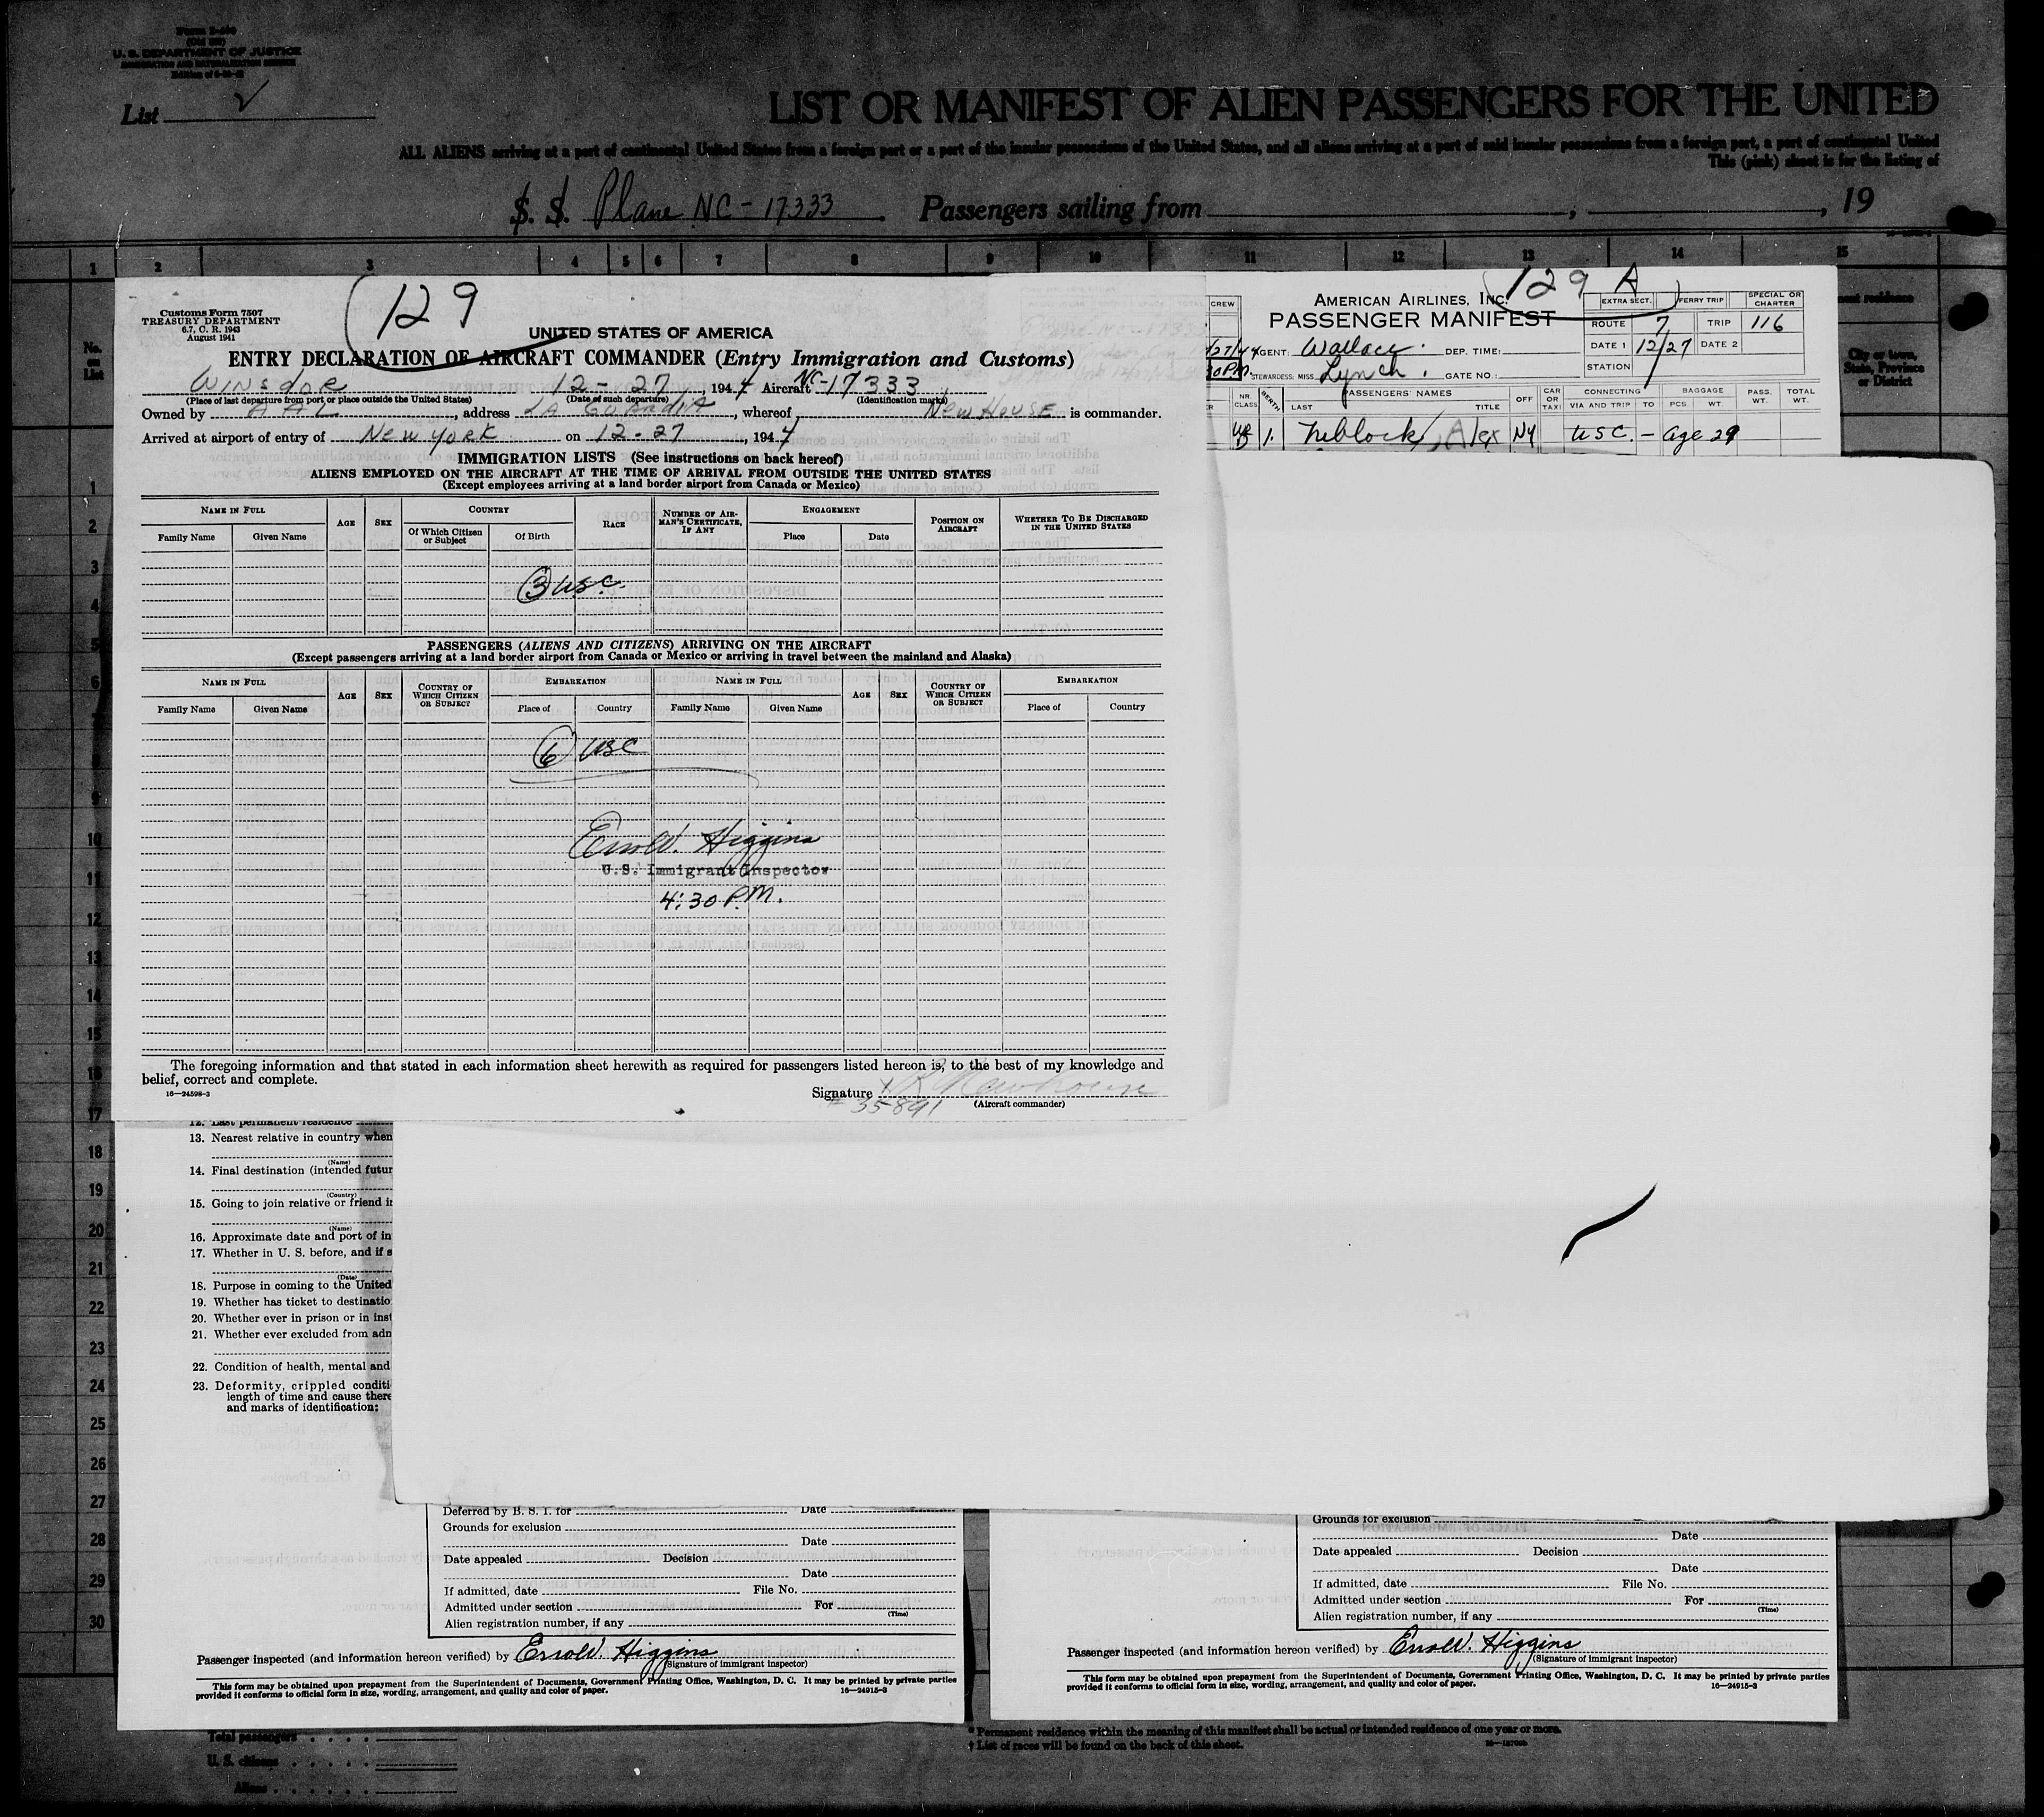 Form I-466
(Old 500)
U. S. DEPARTMENT OF JUSTICE
IMMIGRATION AND NATURALIZATION SERVICE
List
LIST OR MANIFEST OF ALIEN PASSENGERS FOR THE UNITED
ALL ALIENS arriving at a port of continental United States from a foreign port or a port of the insular possessions of the United States, and all aliens arriving at a port of said insular possessions from a foreign port, a port of continental United
This (pink) sheet is for the listing of
S. S. Plane NC-17333. Passengers sailing from , , 19
1 2 3 4 5 6 7 8 9 10 11 12 13 14 15
No. on List
129
Customs Form 7507
TREASURY DEPARTMENT
6.7, C. R. 1943
August 1941
UNITED STATES OF AMERICA
ENTRY DECLARATION OF AIRCRAFT COMMANDER (Entry Immigration and Customs)
Winsdor 12-27, 1944 Aircraft NC-17333
(Place of last departure from port or place outside the United States) (Date of such departure) (Identification marks)
Owned by AAL, address LA Guardia, whereof, NewHouse is commander.
Arrived at airport of entry of New York on 12-27, 1944
IMMIGRATION LISTS (See instructions on back hereof)
ALIENS EMPLOYED ON THE AIRCRAFT AT THE TIME OF ARRIVAL FROM OUTSIDE THE UNITED STATES
(Except employees arriving at a land border airport from Canada or Mexico)
NAME IN FULL AGE SEX COUNTRY RACE NUMBER OF AIRMAN'S CERTIFICATE, IF ANY ENGAGEMENT POSITION ON AIRCRAFT WHETHER TO BE DISCHARGED IN THE UNITED STATES
Family Name Given Name Of Which Citizen or Subject Of Birth Place Date
3 USC.
PASSENGERS (ALIENS AND CITIZENS) ARRIVING ON THE AIRCRAFT
(Except passengers arriving at a land border airport from Canada or Mexico or arriving in travel between the mainland and Alaska)
NAME IN FULL AGE SEX COUNTRY OF WHICH CITIZEN OR SUBJECT EMBARKATION NAME IN FULL AGE SEX COUNTRY OF WHICH CITIZEN OR SUBJECT EMBARKATION
Family Name Given Name Place of Country Family Name Given Name Place of Country
6 USC
Errol W. Higgins
U.S. Immigrant Inspector
4:30 P.M.
The foregoing information and that stated in each information sheet herewith as required for passengers listed hereon is, to the best of my knowledge and
belief, correct and complete.
16—24598-3
Signature Newhouse
(Aircraft commander)
# 35891
CREW
129 A
AMERICAN AIRLINES, INC.
PASSENGER MANIFEST
EXTRA SECT. FERRY TRIP SPECIAL OR CHARTER
ROUTE 7 TRIP 116
DATE 1 12/27 DATE 2
STATION
AGENT: Wallace. DEP. TIME:
STEWARDESS: MISS Lynch. GATE NO.:
NR. CLASS BERTH PASSENGERS' NAMES OFF CAR OR TAXI CONNECTING BAGGAGE PASS. WT. TOTAL WT.
LAST TITLE VIA AND TRIP TO PCS. WT.
1. Niblock, Alex NY USC. - age 29
City or town, State, Province or District
1
2
3
4
5
6
8
9
10
11
12
13
14
15
16
17
18
19
20
21
22
23
24
25
26
27
28
29
30
12. Last permanent residence
13. Nearest relative in country when
(Name)
14. Final destination (intended futur
(Country)
15. Going to join relative or friend i
(Name)
16. Approximate date and port of in
17. Whether in U. S. before, and if s
(Date)
18. Purpose in coming to the United
19. Whether has ticket to destinatio
20. Whether ever in prison or in inst
21. Whether ever excluded from adn
22. Condition of health, mental and
23. Deformity, crippled conditi
length of time and cause there
and marks of identification:
Deferred by B. S. I. for Date
Grounds for exclusion
Date
Date appealed Decision
Date
If admitted, date File No.
Admitted under section For
(Time)
Alien registration number, if any
Passenger inspected (and information hereon verified) by Errol W. Higgins
(Signature of immigrant inspector)
This form may be obtained upon prepayment from the Superintendent of Documents, Government Printing Office, Washington, D. C. It may be printed by private parties
provided it conforms to official form in size, wording, arrangement, and quality and color of paper. 16—24915-3
Grounds for exclusion
Date
Date appealed Decision
Date
If admitted, date File No.
Admitted under section For
(Time)
Alien registration number, if any
Passenger inspected (and information hereon verified) by Errol W. Higgins
(Signature of immigrant inspector)
This form may be obtained upon prepayment from the Superintendent of Documents, Government Printing Office, Washington, D. C. It may be printed by private parties
provided it conforms to official form in size, wording, arrangement, and quality and color of paper. 16—24915-3
Total passengers
U. S. citizens
Aliens
* Permanent residence within the meaning of this manifest shall be actual or intended residence of one year or more.
† List of races will be found on the back of this sheet.